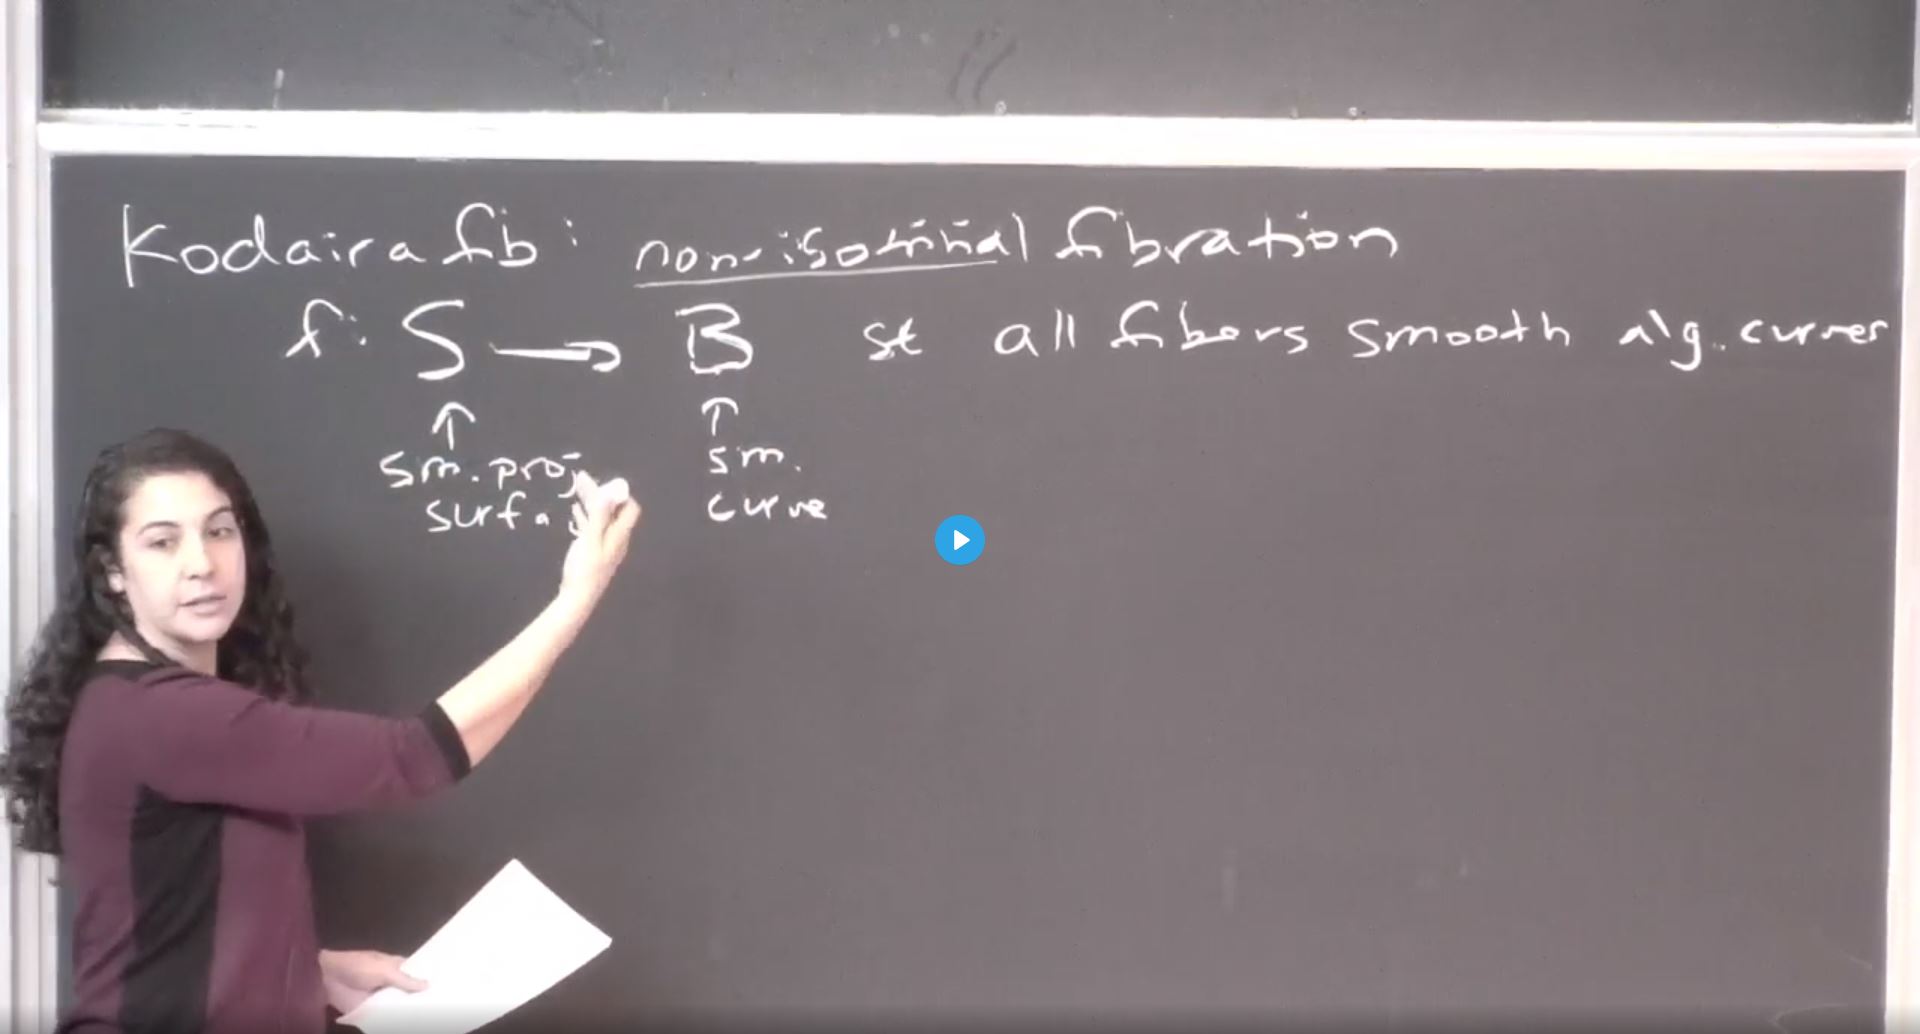 Kodaira fib: non-isotrivial fibration
f: S → B st all fibers smooth alg. curves
↑ ↑
sm. proj sm.
surfa curve